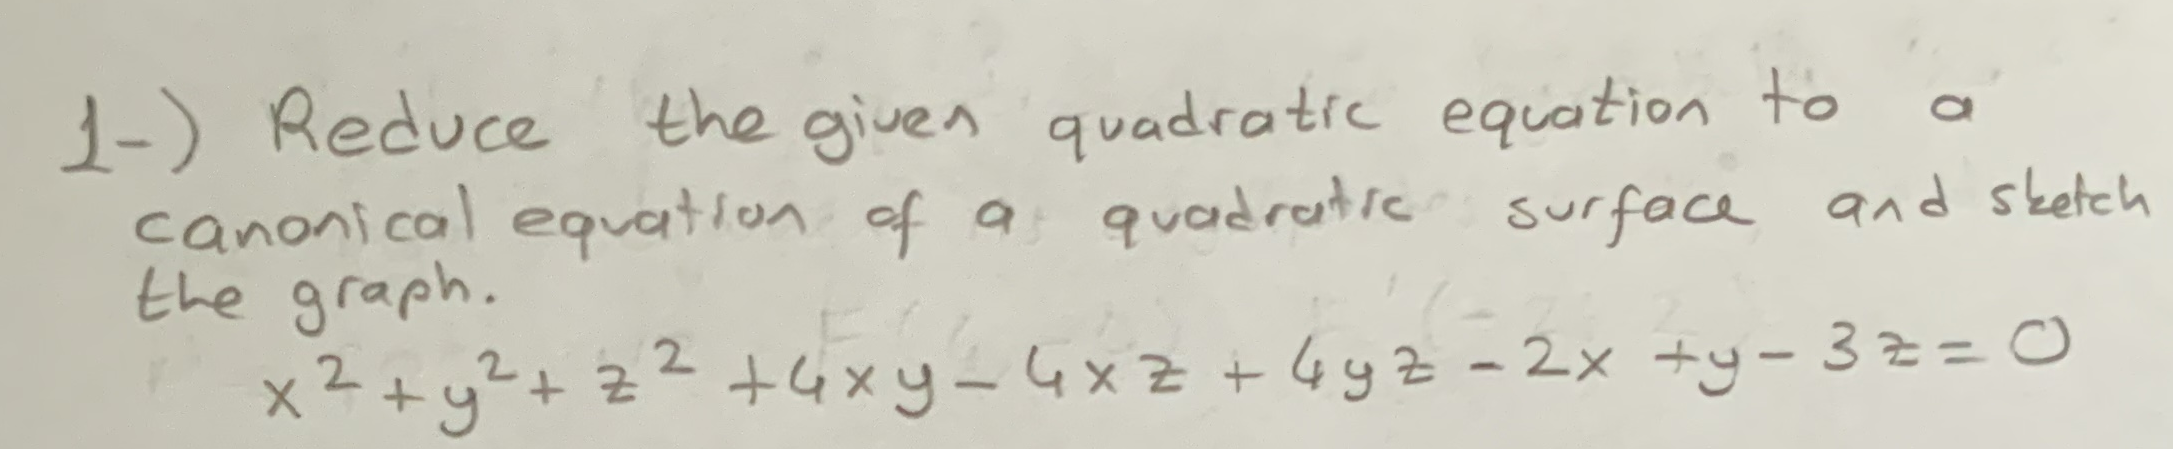 1-) Reduce the given quadratic equation to a
canonical equation of a quadratic surface and sketch
the graph.
x² + y² + z² + 4xy - 4xz + 4yz - 2x + y - 3z = 0